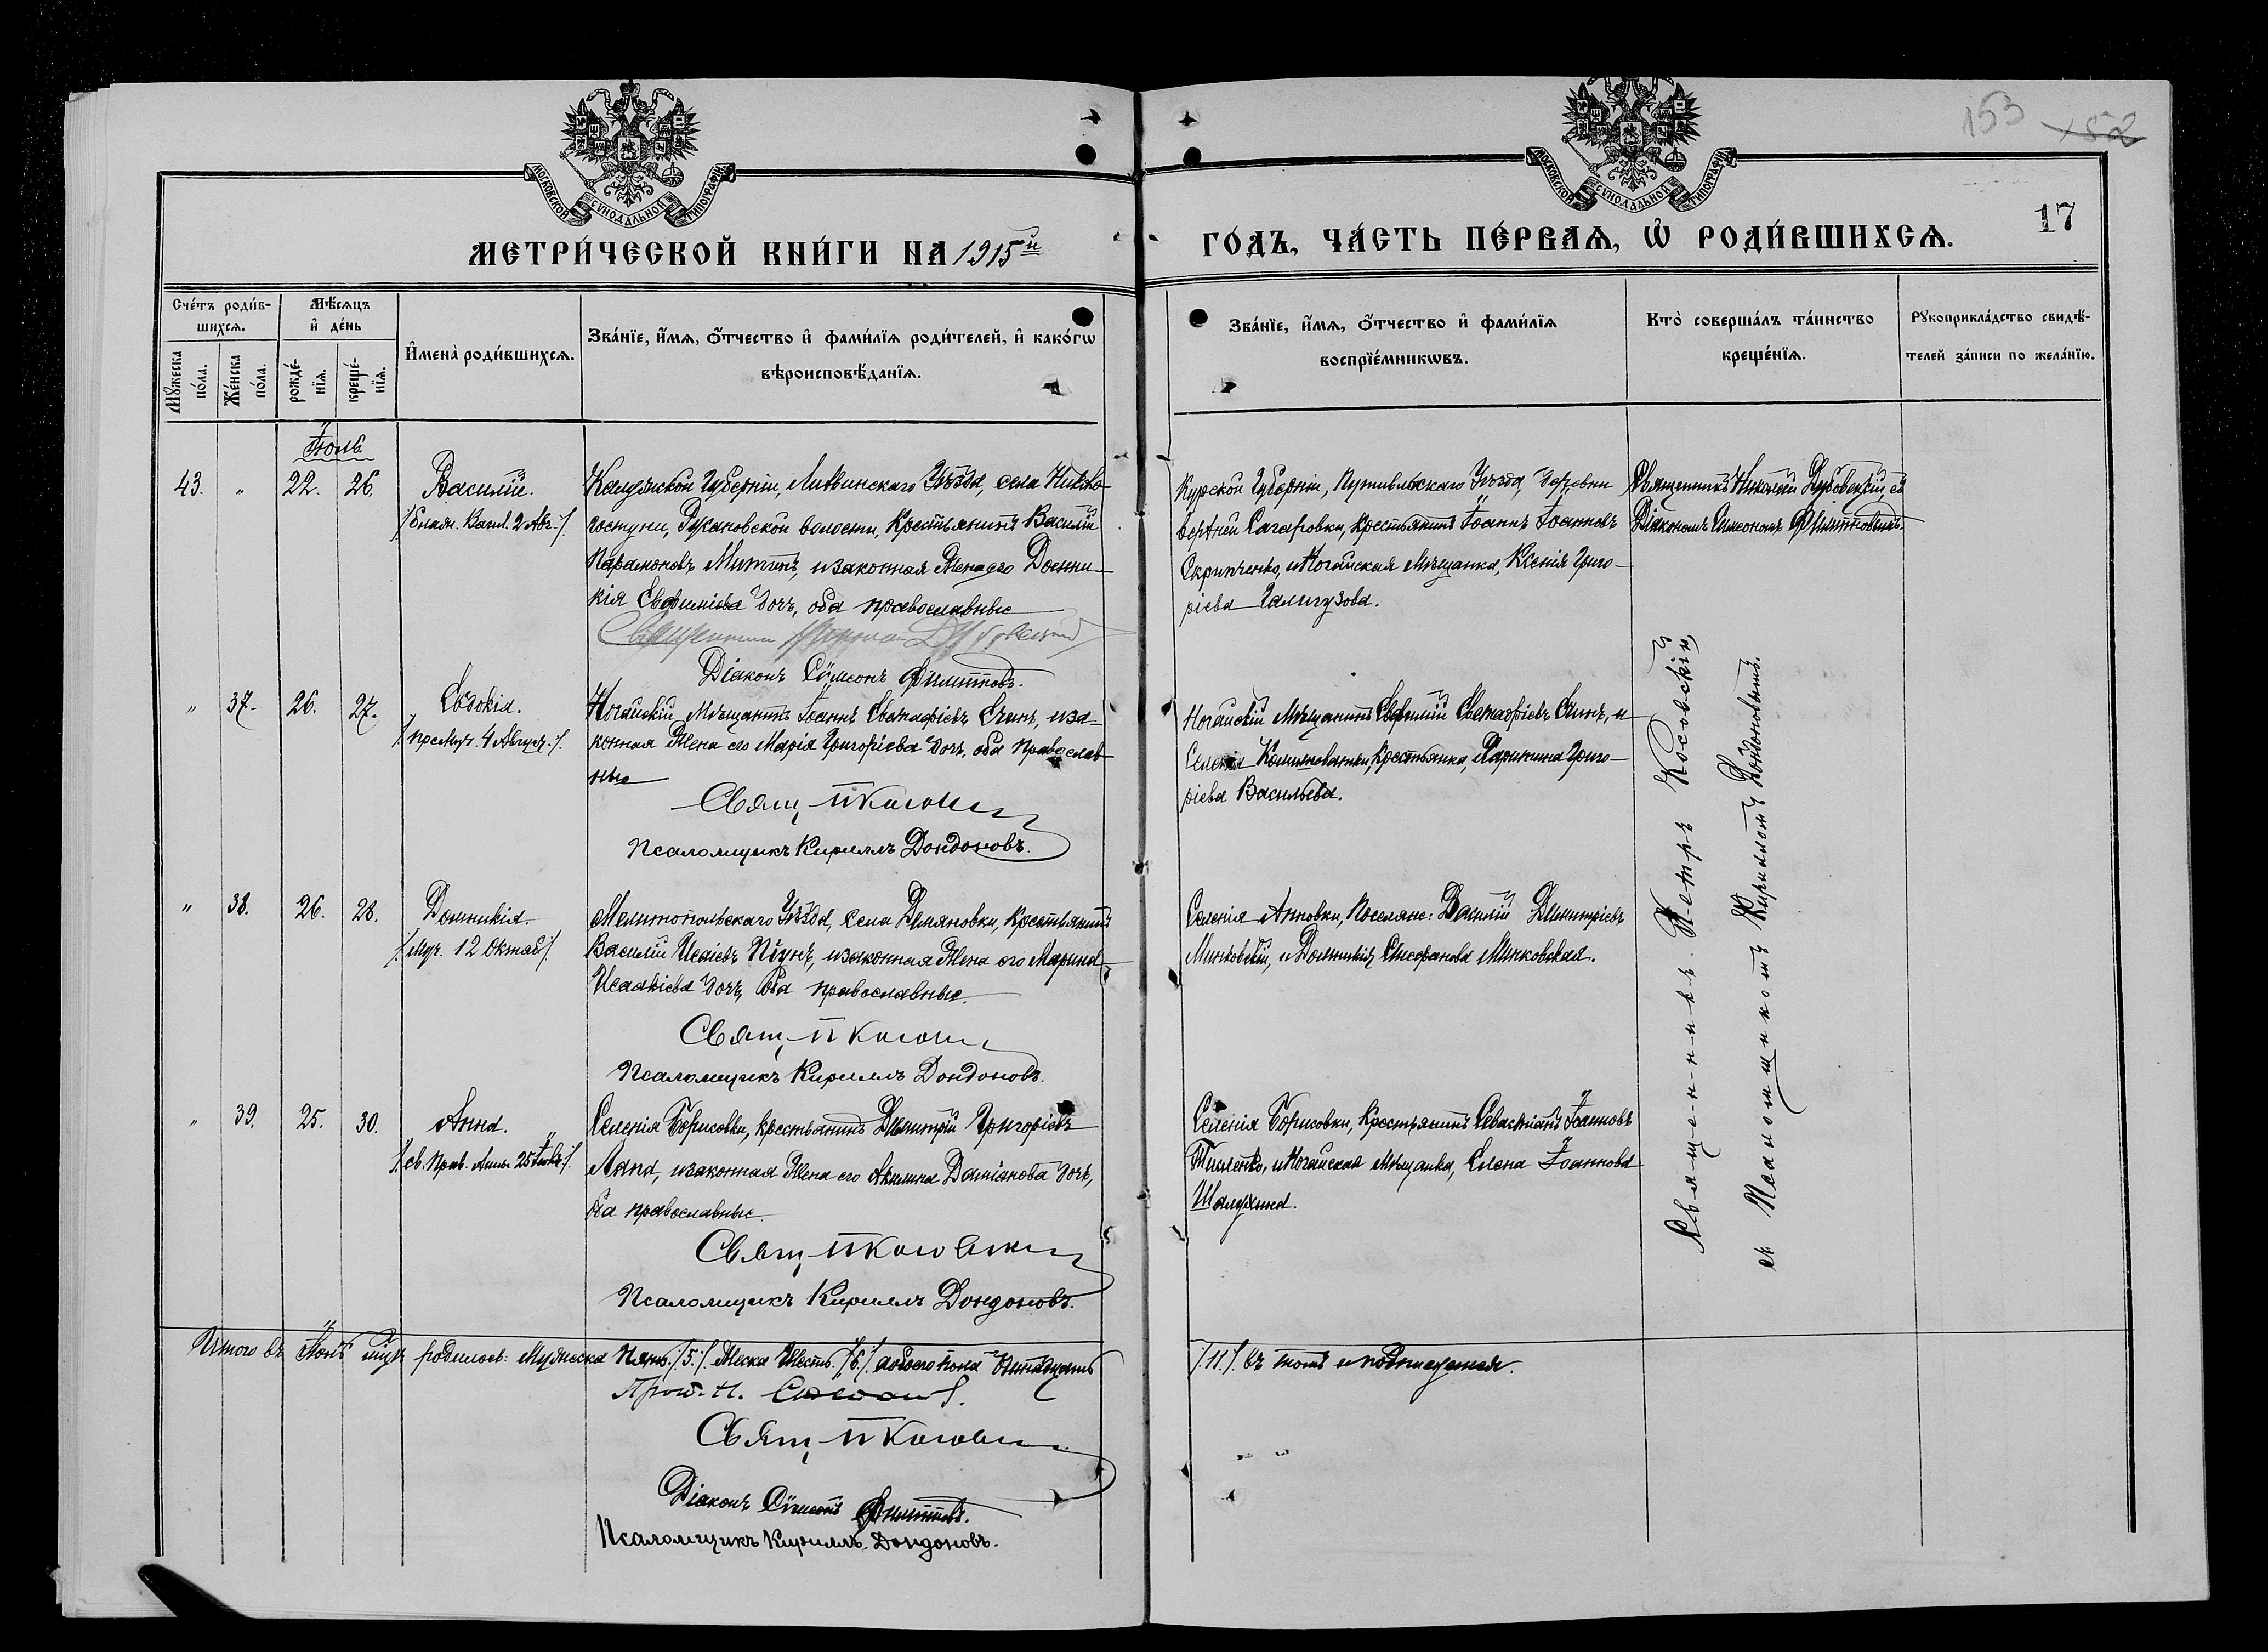 153 152
МОСКОВСКОЙ СѴНОДАЛЬНОЙ ТИПОГРАФІИ
МОСКОВСКОЙ СѴНОДАЛЬНОЙ ТИПОГРАФІИ
МЕТРИ́ЧЕСКОЙ КНИ́ГИ НА 1915й
ГО́ДЪ, ЧА́СТЬ ПЕ́РВАѦ, Ѡ҆ РОДИ́ВШИХСѦ.
17
Сче́тъ роди́в-
шихсѧ.
Мꙋ́жеска
по́ла.
Же́нска
по́ла.
Мѣ́сѧцъ
и҆ де́нь
рожде́-
нїѧ.
креще́-
нїѧ.
И҆мена̀ роди́вшихсѧ.
Зва́нїе, и҆́мѧ, ѻ҆́тчество и҆ фами́лїѧ роди́телей, и҆ како́гѡ
вѣроисповѣ́данїѧ.
Зва́нїе, и҆́мѧ, ѻ҆́тчество и҆ фами́лїѧ
воспрїе́мникѡвъ.
Кто̀ соверша́лъ та́инство
креще́нїѧ.
Рꙋкоприкла́дство свидѣ́-
телей за́писи по жела́нїю.
Іюль.
43. " 22. 26. Василій.
/:блаж. Васил. 2 Авг.:/
Калужской Губерніи, Лихвинскаго Уѣзда, села
Русановской волости, Крестьянинъ Василій
Парамоновъ Митинъ, и законная Жена его Домни-
кія Евфиміева дочь, оба православные
Діаконъ Сѵмеонъ Филипповъ.
Курской Губерніи, Путивльскаго Уѣзда, деревни
Верхней Сагаровки, Крестьянинъ Іоаннъ Іоанновъ
Скрипченко, и Ногайская Мѣщанка, Ксенія Григо-
ріева Галигузова.
Священникъ Николай Дубовецкій, съ
Діакономъ Симеономъ Филипповымъ.
" 37. 26. 27. Евдокія.
/:премуч. 4 Август.:/
Ногайскій Мѣщанинъ Іоаннъ Евстафіевъ и за-
конная Жена его Марія Григоріева дочь, оба православ-
ные
Свящ. П Косовскі
Псаломщикъ Кириллъ Дондоновъ.
Ногайскій Мѣщанинъ Евфимій Евстафіевъ и
Селенія Крестьянка, Григо-
ріева Васильева.
" 38. 26. 28. Домникія
/:муч. 12 Октяб:/
Мелитопольскаго Уѣзда, Села Демяновки, Крестьянинъ
Василій Исаіевъ и законная Жена его Марина
Исаакіева дочь, оба православные.
Свящ. П Косовскі
Псаломщикъ Кириллъ Дондоновъ.
Селенія Анновки, Поселяне: Василій Димитріевъ
Минковскій, и Домникія Минковская.
" 39. 25. 30. Анна.
/:св. Прав. Анны 25 Іюля:/
Селенія Борисовки, Крестьянинъ Димитрій Григоріевъ
Лапа, и законная Жена его Акилина Даміанова дочь,
оба православные.
Свящ. П Косовскі
Псаломщикъ Кириллъ Дондоновъ.
Селенія Борисовки, Крестьянинъ Севастіанъ Іоанновъ
и Ногайская Мѣщанка, Елена Іоаннова
Священникъ Петръ Косовскій,
съ Псаломщикомъ Кирилломъ Дондоновымъ.
Итого въ Іюлѣ мцѣ родилось: Мужеска Пять /:5:/ Женска Шесть /:6:/ а обоего пола Одинадцать
/:11:/ въ томъ и подписуемся.
Прот. Н.
Свящ. П Косовскі
Діаконъ Сѵмеонъ Филипповъ.
Псаломщикъ Кириллъ Дондоновъ.